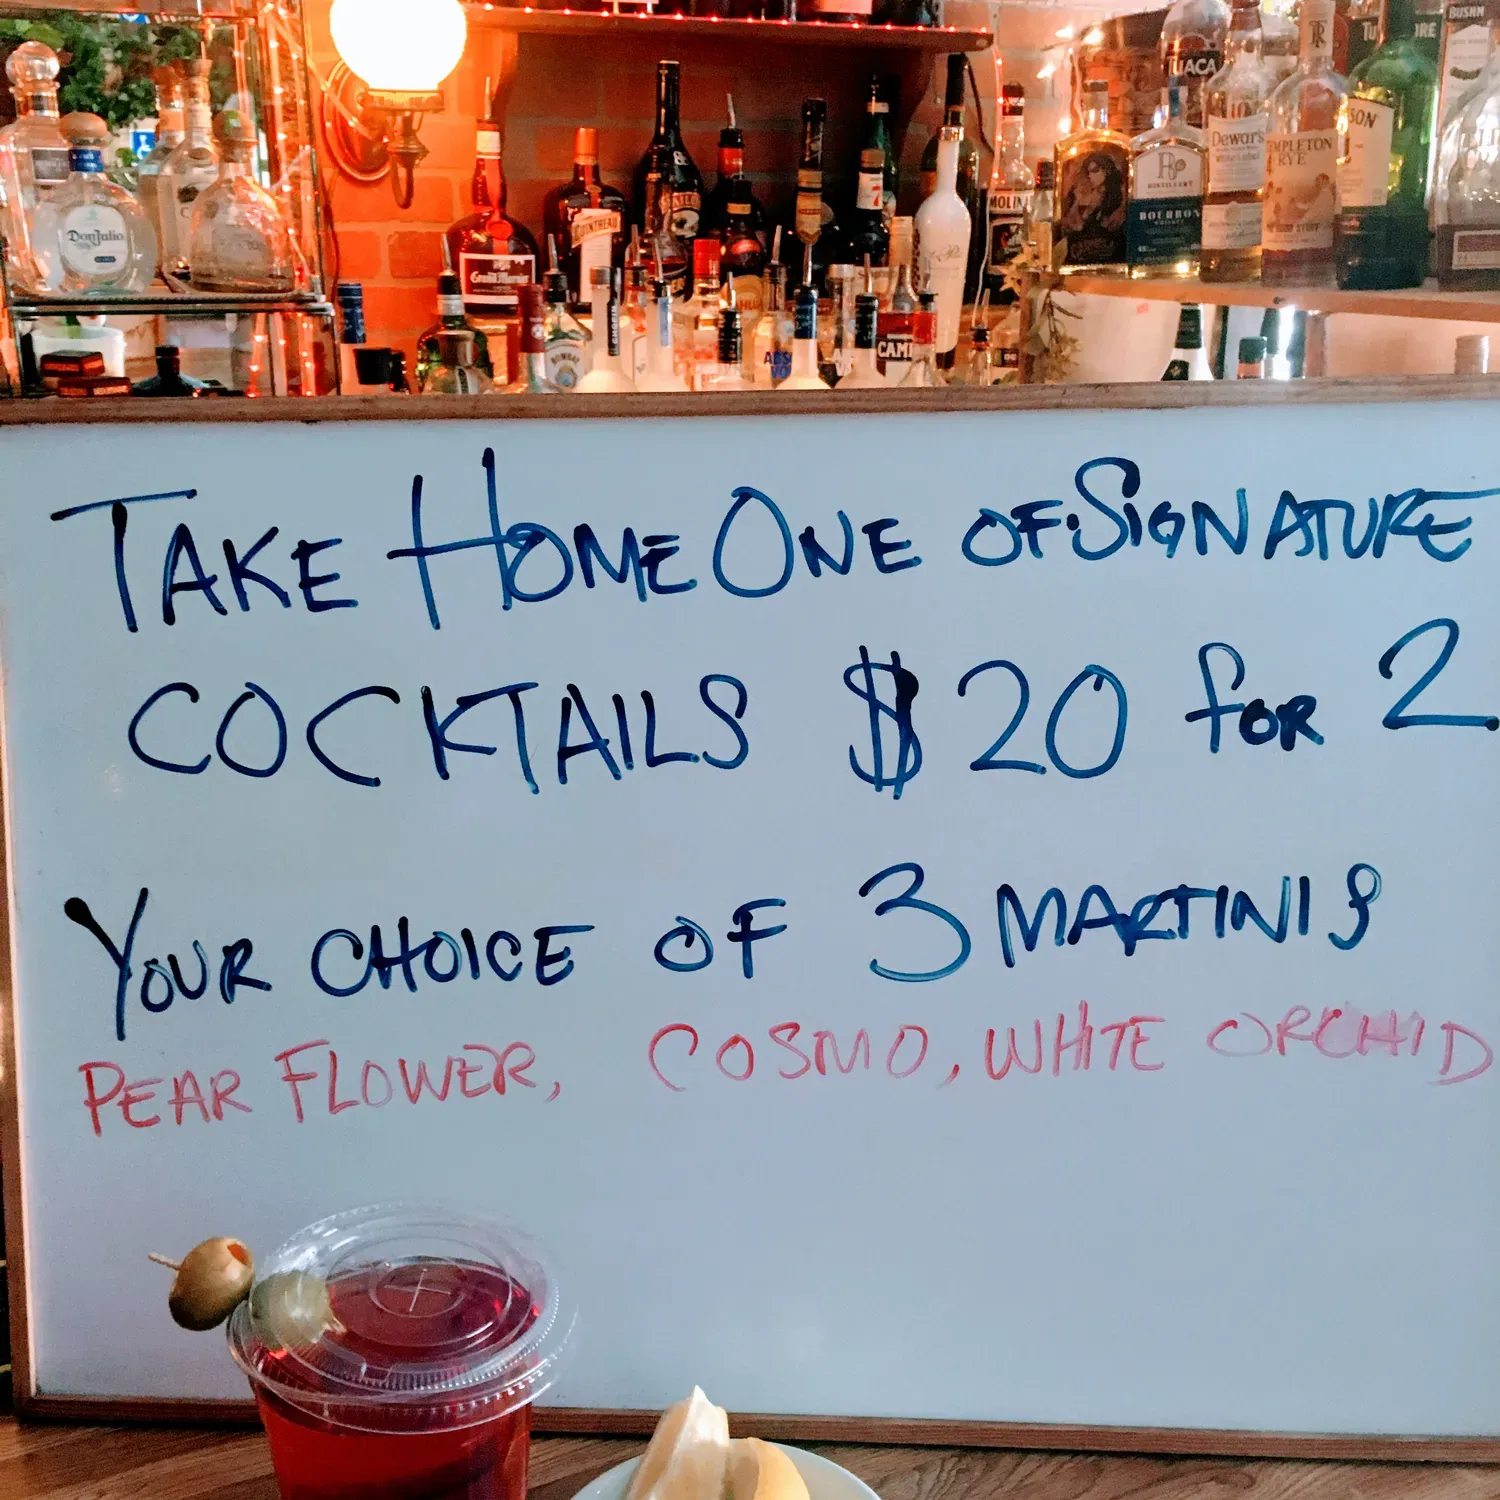 TUACA
BUSHM
DonJulio
Grand Marnier
COINTREAU
7
MOLIN
Dewar's
DISTILLERY
BOURBON
TEMPLETON
RYE
SON
BOMBAY
ABS
CAMP
TAKE HOME ONE OF SIGNATURE
COCKTAILS $20 FOR 2
YOUR CHOICE OF 3 MARTINIS
PEAR FLOWER, COSMO, WHITE ORCHID